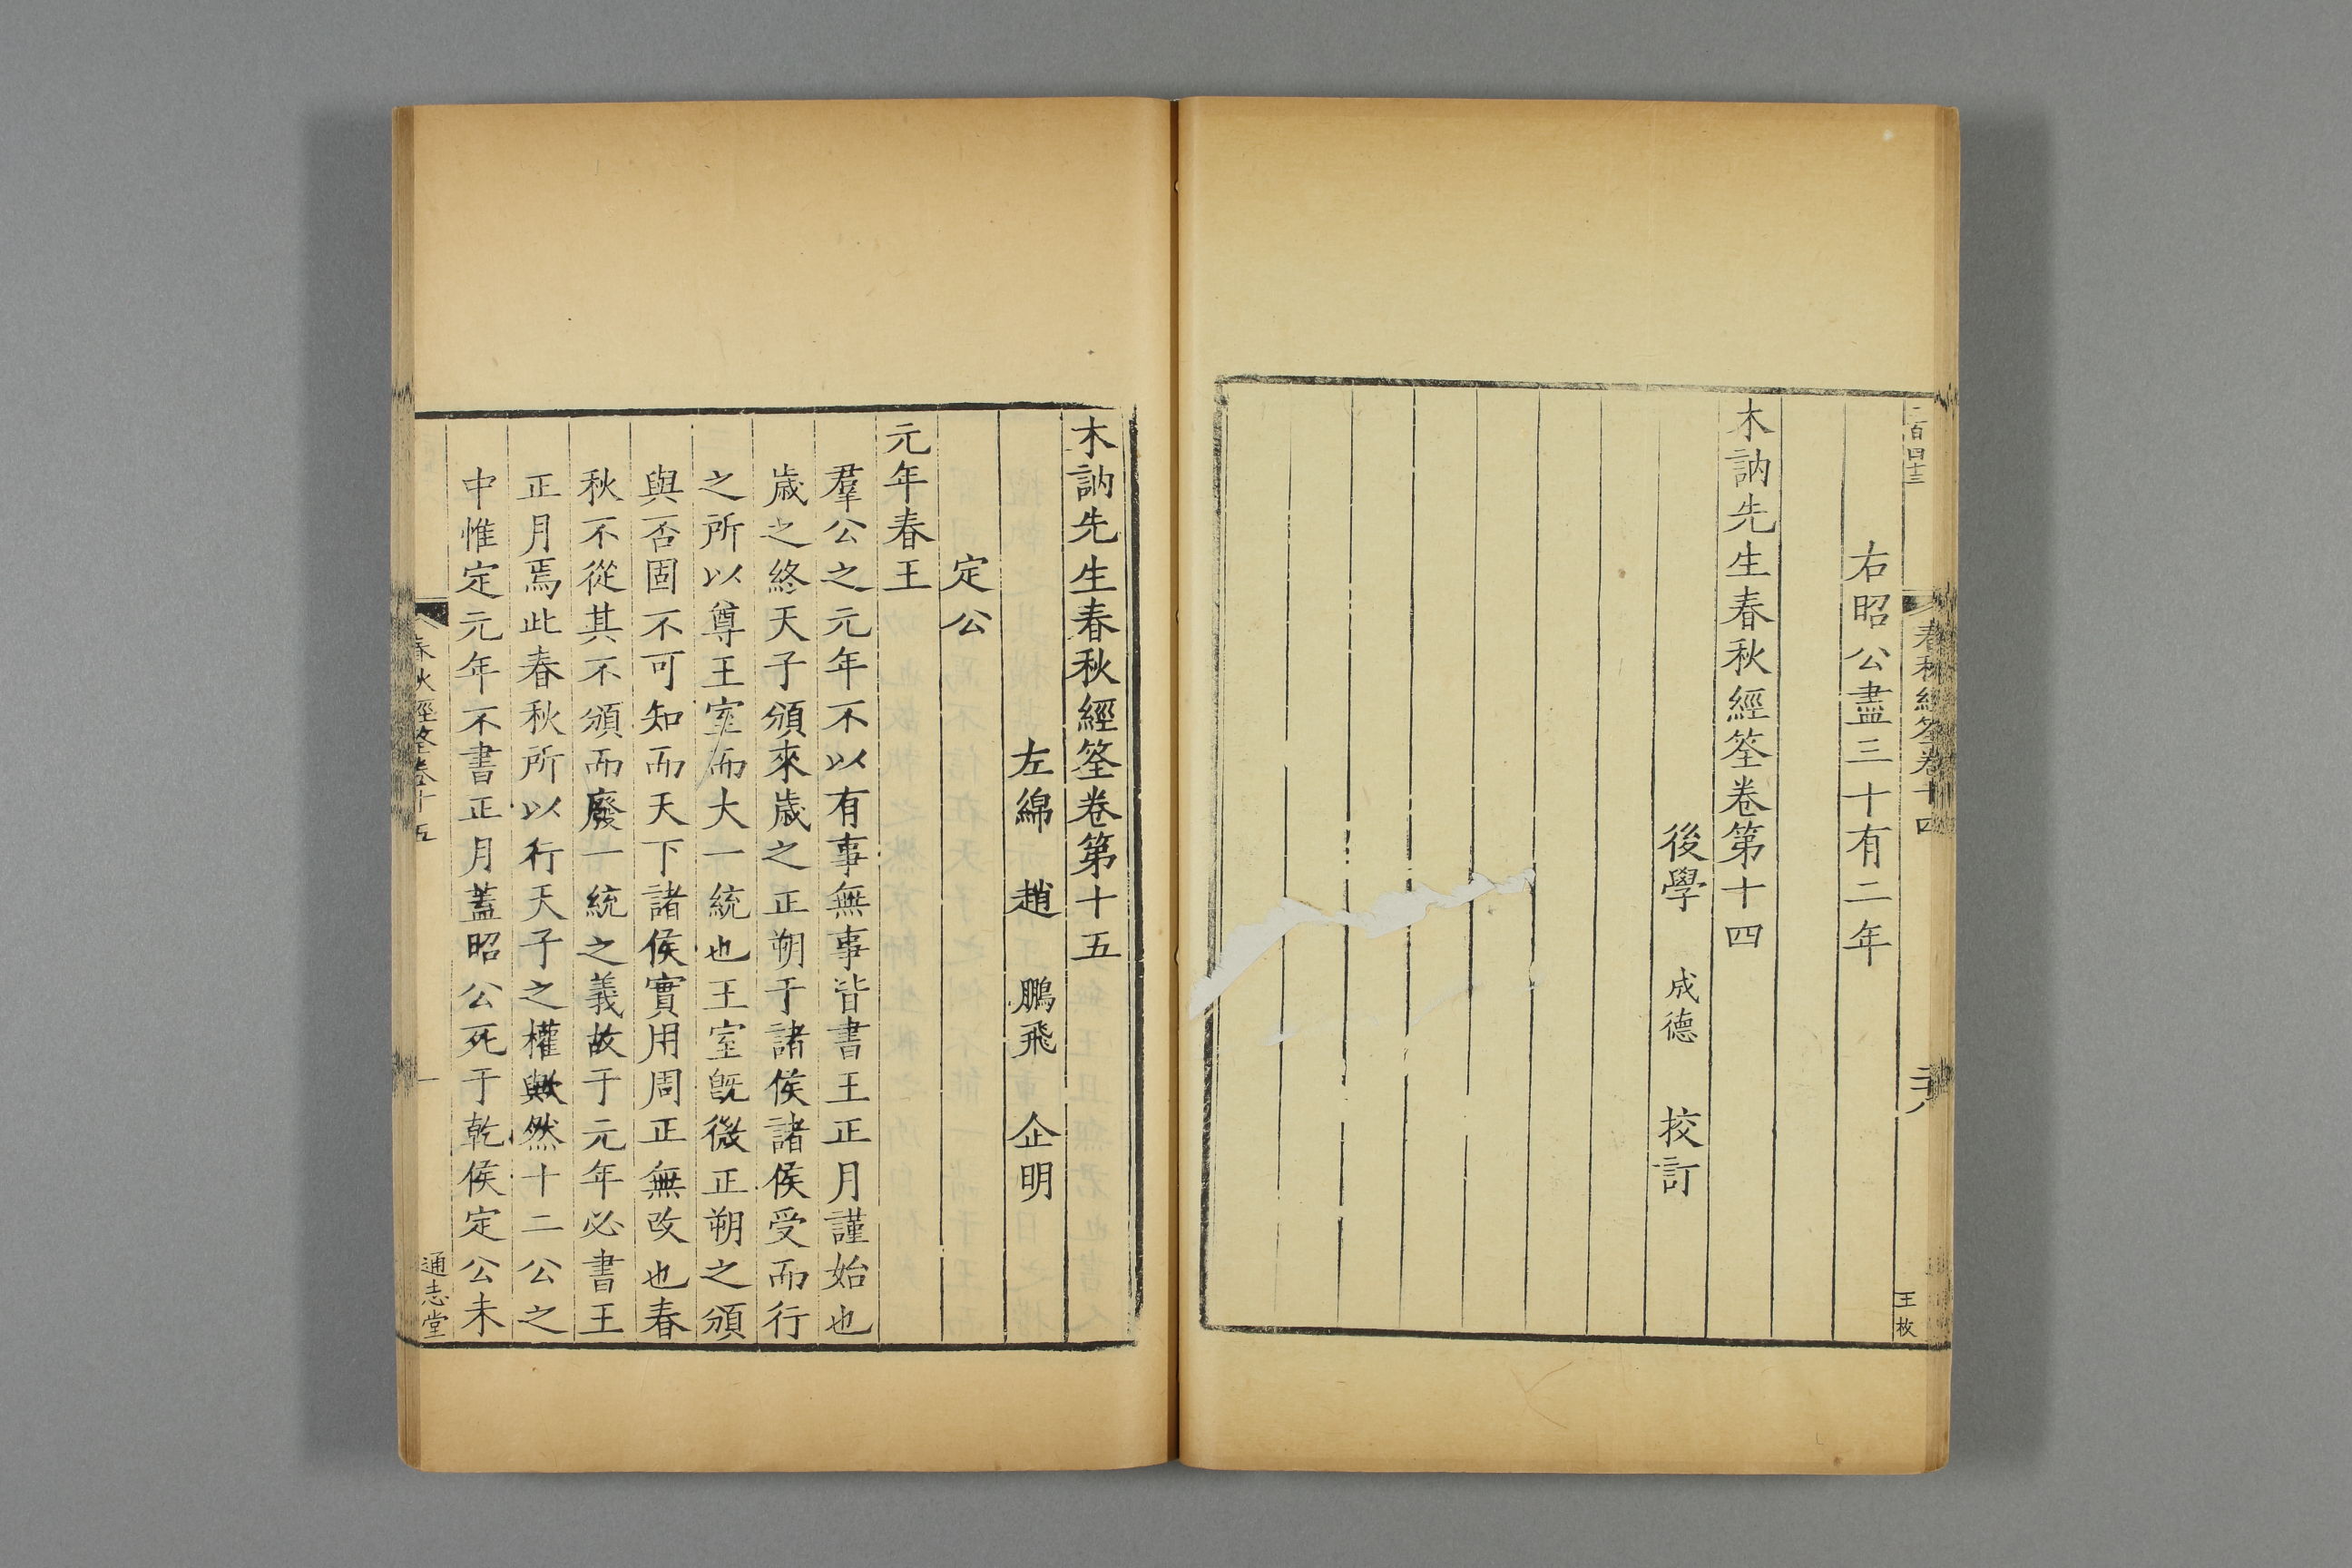 二百四十三
春秋經筌卷十四
王枚
右昭公盡三十有二年
木訥先生春秋經筌卷第十四
後學 成德 挍訂
木訥先生春秋經筌卷第十五
左綿 趙 鵬飛 企明
定公
元年春王
羣公之元年不以有事無事皆書王正月謹始也
歲之終天子頒來歲之正朔于諸侯諸侯受而行
之所以尊王室而大一統也王室旣微正朔之頒
與否固不可知而天下諸侯實用周正無改也春
秋不從其不頒而廢一統之義故于元年必書王
正月焉此春秋所以行天子之權歟然十二公之
中惟定元年不書正月蓋昭公死于乾侯定公未
春秋經筌卷十五
一
通志堂